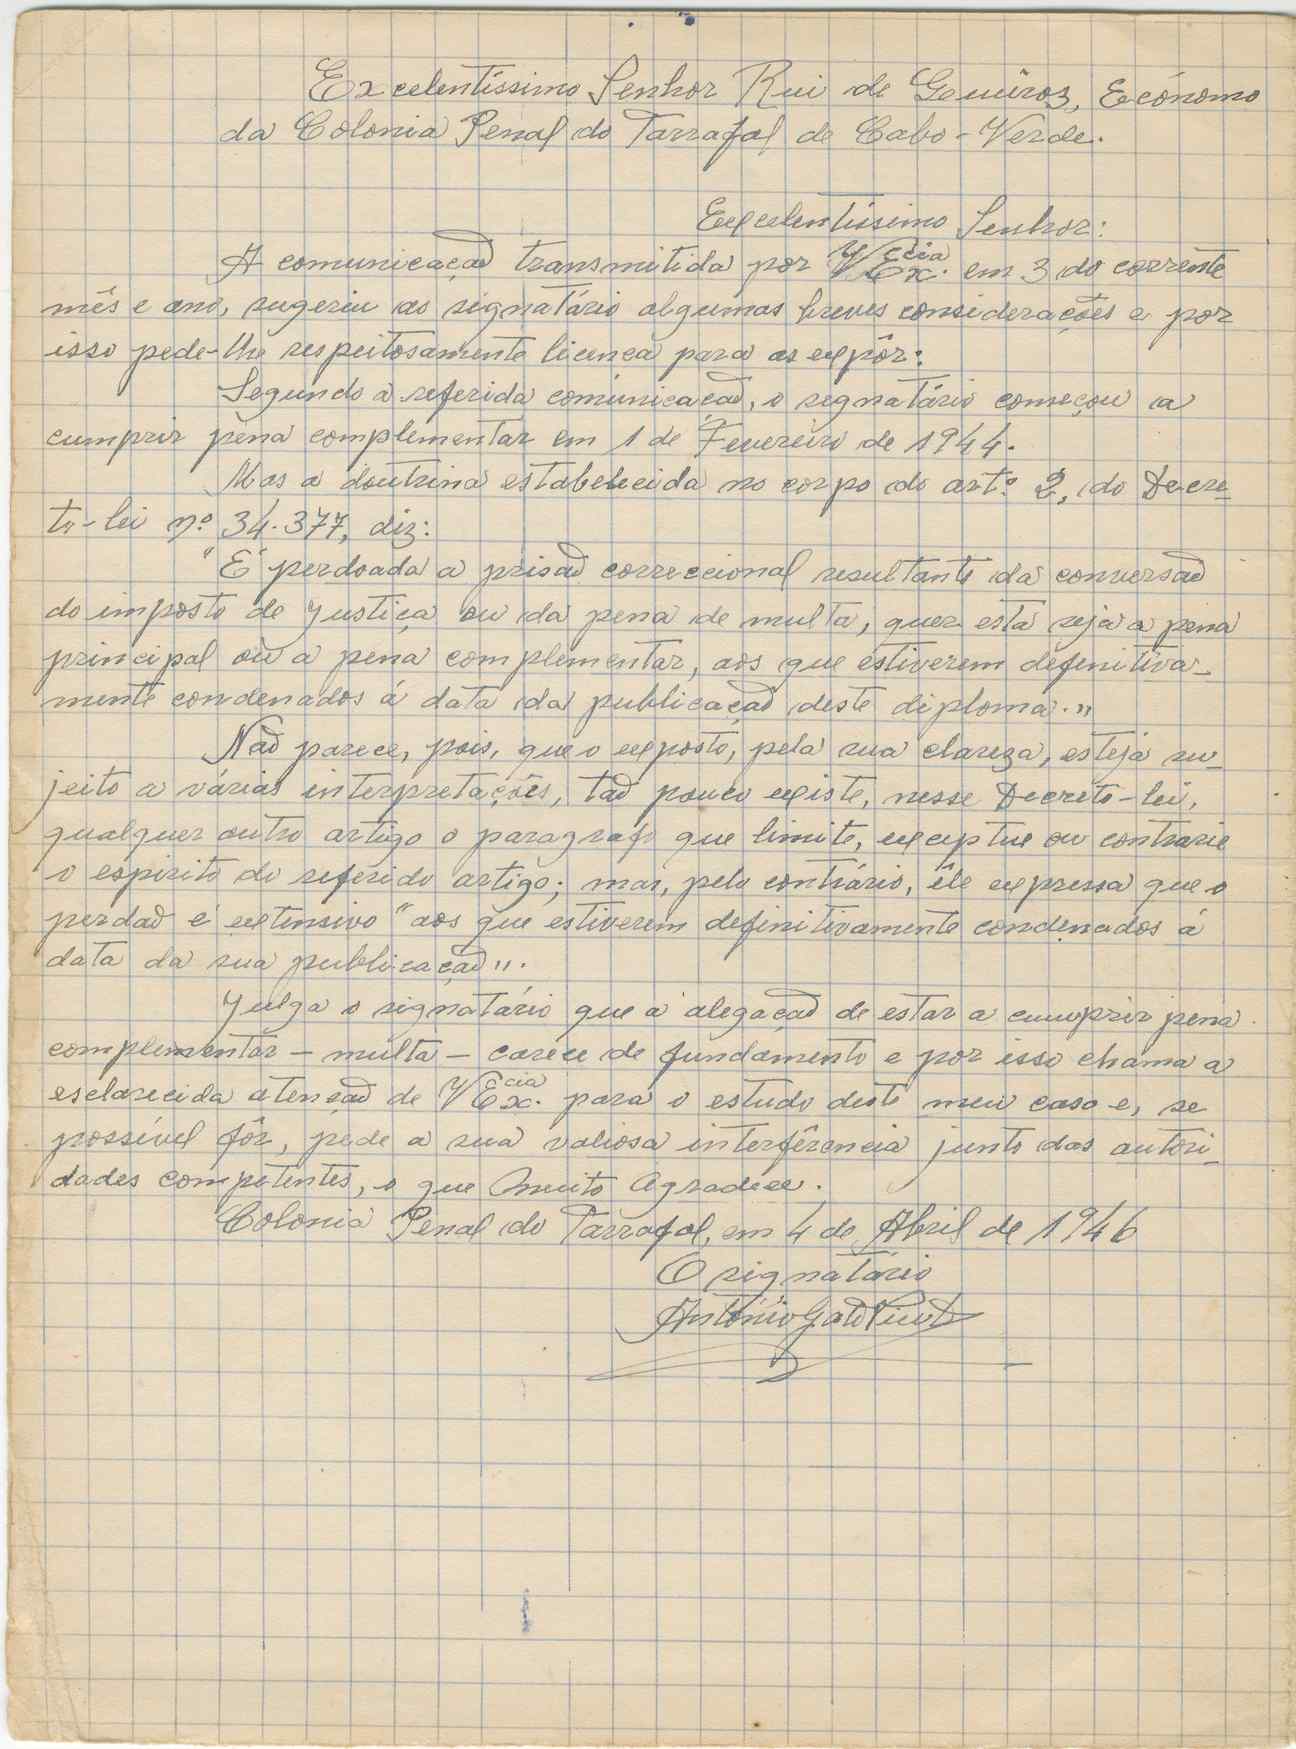 Excelentíssimo Senhor Rui de Geuüroz, Ecónomo
da Colonia Penal do Tarrafal de Cabo-Verde.
Excelentíssimo Senhor:
A comunicação transmitida por V Ex.cia em 3 do corrente
mês e ano, sugeriu ao signatário algumas breves considerações e por
isso pede-lhe respeitosamente licença para as expôr:
Segundo a referida comunicação, o signatário começou a
cumprir pena complementar em 1 de Fevereiro de 1944.
Mas a doutrina estabelecida no corpo do artº. 2, do Decre-
to-lei nº 34.377, diz:
"É perdoada a prisão correccional resultante da conversão
do imposto de justiça ou da pena de multa, quer esta seja a pena
principal ou a pena complementar, aos que estiverem definitiva-
mente condenados á data da publicação deste diploma.„
Não parece, pois, que o exposto, pela sua clareza, esteja su-
jeito a várias interpretações, tão pouco existe, nesse Decreto-lei,
qualquer outro artigo o paragrafo que limite, exceptue ou contrarie
o espirito do referido artigo; mas, pelo contrário, êle expressa que o
perdão é extensivo "aos que estiverem definitivamente condenados á
data da sua publicação„.
Julga o signatário que a alegação de estar a cumprir pena
complementar - multa - carece de fundamento e por isso chama a
esclarecida atenção de V Ex.cia para o estudo deste meu caso e, se
possível fôr, pede a sua valiosa interferência junto das autori-
dades competentes, o que Muito Agradece.
Colonia Penal do Tarrafal, em 4 de Abril de 1946
O signatário
António Gato Pinto